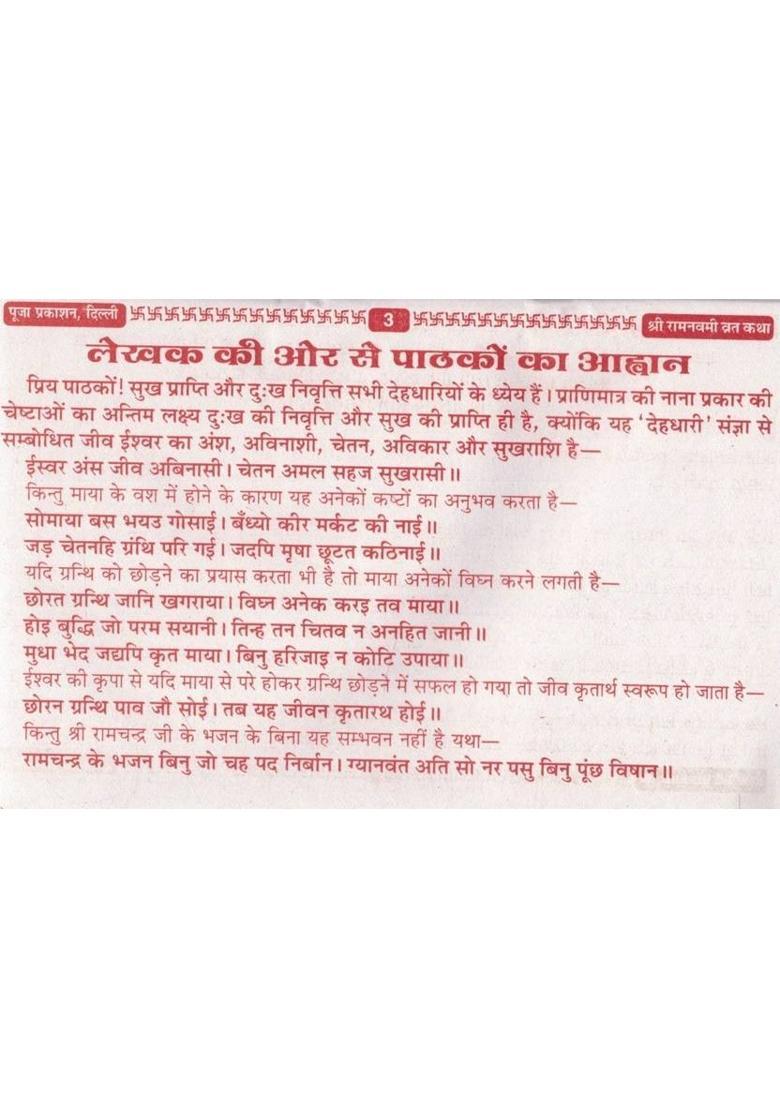 पूजा प्रकाशन, दिल्ली 卐卐卐卐卐卐卐卐卐卐卐卐卐卐卐 3 卐卐卐卐卐卐卐卐卐卐卐卐卐卐卐 श्री रामनवमी व्रत कथा
लेखक की ओर से पाठकों का आह्वान
प्रिय पाठकों! सुख प्राप्ति और दुःख निवृत्ति सभी देहधारियों के ध्येय हैं। प्राणिमात्र की नाना प्रकार की
चेष्टाओं का अन्तिम लक्ष्य दुःख की निवृत्ति और सुख की प्राप्ति ही है, क्योंकि यह 'देहधारी' संज्ञा से
सम्बोधित जीव ईश्वर का अंश, अविनाशी, चेतन, अविकार और सुखराशि है—
ईस्वर अंस जीव अबिनासी। चेतन अमल सहज सुखरासी॥
किन्तु माया के वश में होने के कारण यह अनेकों कष्टों का अनुभव करता है—
सोमाया बस भयउ गोसाई। बँध्यो कीर मर्कट की नाई॥
जड़ चेतनहि ग्रंथि परि गई। जदपि मृषा छूटत कठिनाई॥
यदि ग्रन्थि को छोड़ने का प्रयास करता भी है तो माया अनेकों विघ्न करने लगती है—
छोरत ग्रन्थि जानि खगराया। विघ्न अनेक करइ तव माया॥
होइ बुद्धि जो परम सयानी। तिन्ह तन चितव न अनहित जानी॥
मुधा भेद जद्यपि कृत माया। बिनु हरिजाइ न कोटि उपाया॥
ईश्वर की कृपा से यदि माया से परे होकर ग्रन्थि छोड़ने में सफल हो गया तो जीव कृतार्थ स्वरूप हो जाता है—
छोरन ग्रन्थि पाव जौ सोई। तब यह जीवन कृतारथ होई॥
किन्तु श्री रामचन्द्र जी के भजन के बिना यह सम्भवन नहीं है यथा—
रामचन्द्र के भजन बिनु जो चह पद निर्बान। ग्यानवंत अति सो नर पसु बिनु पूंछ विषान॥